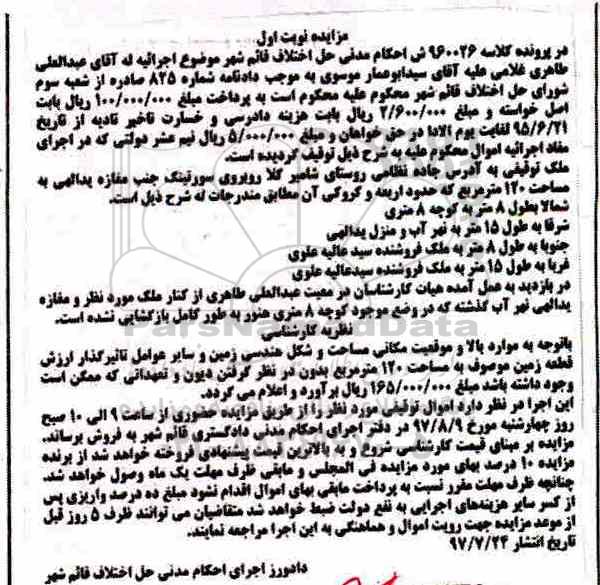 مزایده نوبت اول
در پرونده کلاسه ۹۶۰۰۲۶ ش احکام مدنی حل اختلاف قائم شهر موضوع اجرائیه له آقای عبدالعلی
طاهری غلامی علیه آقای سیدابوعمار موسوی به موجب دادنامه شماره ۸۲۵ صادره از شعبه سوم
شورای حل اختلاف قائم شهر محکوم علیه محکوم است به پرداخت مبلغ ۱۰۰/۰۰۰/۰۰۰ ریال بابت
اصل خواسته و مبلغ ۲/۶۰۰/۰۰۰ ریال بابت هزینه دادرسی و خسارت تاخیر تادیه از تاریخ
۹۵/۶/۲۱ لغایت یوم الادا در حق خواهان و مبلغ ۵/۰۰۰/۰۰۰ ریال نیم عشر دولتی که در اجرای
مفاد اجرائیه اموال محکوم علیه به شرح ذیل توقیف گردیده است.
ملک توقیفی به آدرس جاده نظامی روستای شاهیر کلا روبروی سورتینگ جنب مغازه یدالهی به
مساحت ۱۲۰ مترمربع که حدود اربعه و کروکی آن مطابق مندرجات له شرح ذیل است.
شمالا بطول ۸ متر به کوچه ۸ متری
شرقا به طول ۱۵ متر به نهر آب و منزل یدالهی
جنوبا به طول ۸ متر به ملک فروشنده سید عالیه علوی
غربا به طول ۱۵ متر به ملک فروشنده سیدعالیه علوی
در بازدید به عمل آمده هیات کارشناسان در معیت عبدالعلی طاهری از کنار ملک مورد نظر و مغازه
یدالهی نهر آب گذشته که در وضع موجود کوچه ۸ متری هنوز به طور کامل بازگشایی نشده است.
نظریه کارشناسی
باتوجه به موارد بالا و موقعیت مکانی مساحت و شکل هندسی زمین و سایر عوامل تاثیرگذار ارزش
قطعه زمین موصوف به مساحت ۱۲۰ مترمربع بدون در نظر گرفتن دیون و تعهداتی که ممکن است
وجود داشته باشد مبلغ ۱۶۵/۰۰۰/۰۰۰ ریال برآورد و اعلام می گردد.
این اجرا در نظر دارد اموال توقیفی مورد نظر را از طریق مزایده حضوری از ساعت ۹ الی ۱۰ صبح
روز چهارشنبه مورخ ۹۷/۸/۹ در دفتر اجرای احکام مدنی دادگستری قائم شهر به فروش برساند.
مزایده بر مبنای قیمت کارشناسی شروع و به بالاترین قیمت پیشنهادی فروخته خواهد شد از برنده
مزایده ۱۰ درصد بهای مورد مزایده فی المجلس و مابقی ظرف مهلت یک ماه وصول خواهد شد.
چنانچه ظرف مهلت مقرر نسبت به پرداخت مابقی بهای اموال اقدام نشود مبلغ ده درصد واریزی پس
از کسر سایر هزینه‌های اجرایی به نفع دولت ضبط خواهد شد متقاضیان می توانند ظرف ۵ روز قبل
از موعد مزایده جهت رویت اموال و هماهنگی به این اجرا مراجعه نمایند.
تاریخ انتشار ۹۷/۷/۲۴
دادورز اجرای احکام مدنی حل اختلاف قائم شهر